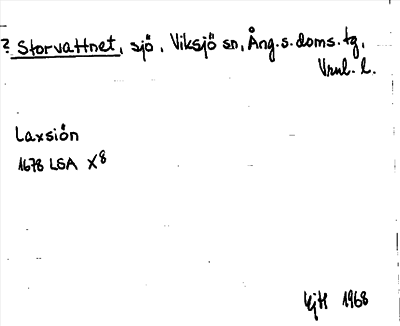 ? Storvattnet, sjö, Viksjö sn, Ång. s. doms. tg,
Vrnl. l.
Laxsiön
1678 LSA X8
EjH 1968